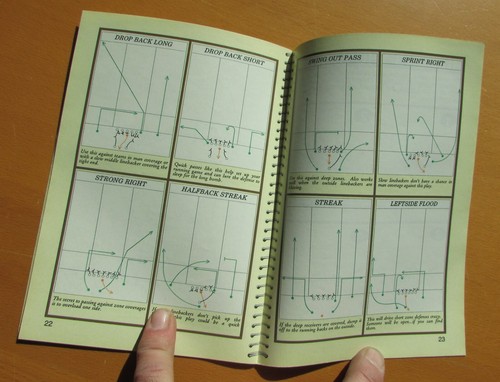 DROP BACK LONG
Use this against teams in man coverage or
with a slow middle linebacker covering the
right end.
DROP BACK SHORT
Quick passes like this help set up your
running game and can lure the defense to
sleep for the long bomb.
STRONG RIGHT
The secret to passing against zone coverages
is to overload one side.
HALFBACK STREAK
linebackers don't pick up the
this play could be a quick
22
SWING OUT PASS
Use this against deep zones. Also works
well when the outside linebackers are
SPRINT RIGHT
Slow linebackers don't have a chance in
man coverage against this play.
STREAK
If the deep receivers are covered, dump it
off to the running backs on the outside.
LEFTSIDE FLOOD
This will drive short zone defenses crazy.
Someone will be open, if you can find
them.
23